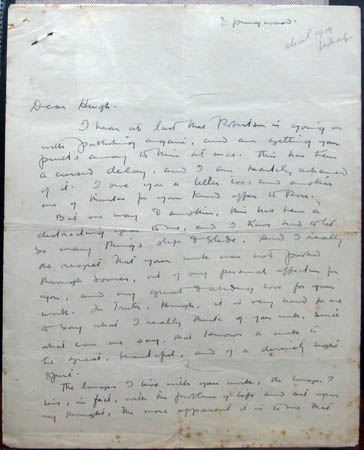 Springwood.
about 1919
probably
Dear Hugh.
I hear at last that Robertson is going on
with publishing again, and am getting your
proofs away to him at once. This has been
a cursed delay, and I am heartily ashamed
of it. I owe you a letter too and another
one of thanks for your kind offer to Rose.
But one way & another, this has been a
distracting year to me, and I have had to let
so many things slip & slide. And I really
do regret that your work was not pushed
through sooner, out of my personal affection for
you, and my great & abiding love for your
work. In truth, Hugh, it is very hard for me
to say what I really think of your work, since
what can one say, that knows a work to
be great, beautiful, and of a divinely
spirit.
The longer I live with your work, the longer I
live, in fact, with the problem of life and art upon
my thought, the more apparent it is to me that